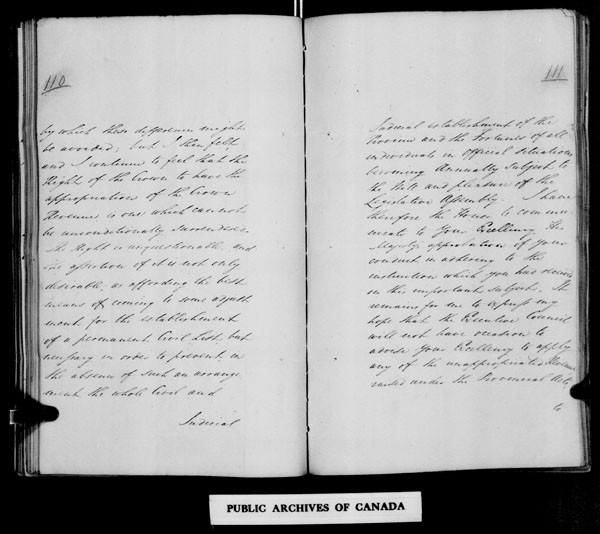 110
by which these differences might
be avoided; but I then felt
and I continue to feel that the
Right of the Crown to have the
appropriation of the Crown
Revenue is one which cannot
be unconditionally surrendered.
The Right is unquestionable, and
the assertion of it is not only
desirable, as affording the best
means of coming to some adjust
ment for the establishment
of a permanent Civil List, but
necessary in order to prevent, in
the absence of such an arrange
ment the whole Civil and
Judicial
111
Judicial establishment of the
Province and the Fortunes of all
individuals in Official Situations
becoming Annually Subject to
the Will and pleasure of the
Legislative Assembly. I have
therefore the Honor to commu
nicate to Your Excellency His
Majesty's approbation of your
conduct in adhering to the
instruction which you had received
on this important subject. It
remains for me to express my
hope that the Executive Council
will not have occasion to
advise Your Excellency to apply
any of the unappropriated Revenue
raised under the Provincial Acts,
to
PUBLIC ARCHIVES OF CANADA